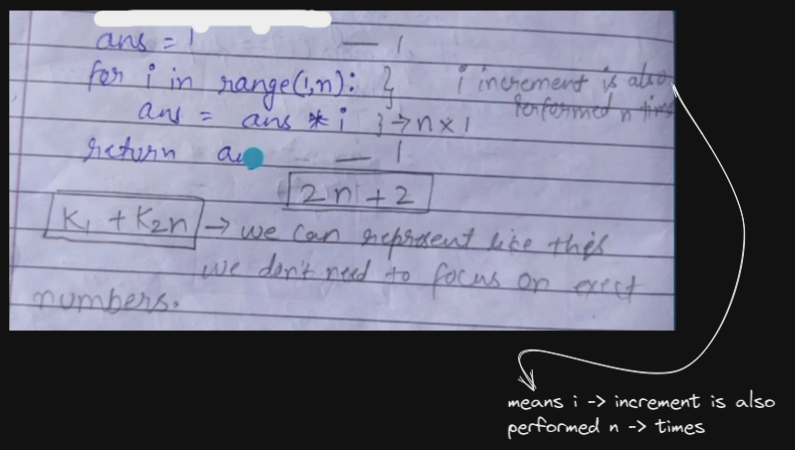 ans = 1 — 1
for i in range(1,n): } i increment is also
performed n times
ans = ans * i } → n x 1
return — 1
2n + 2
K1 + K2n → we can represent like this
we don't need to focus on exect
numbers.
means i -> increment is also
performed n -> times